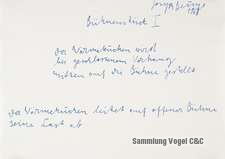 Bühnenstück I
Das Wärmekücken wird
bei geschlossenem Vorhang
mitten auf die Bühne gestellt
Das Wärmekücken leitet auf offener Bühne
seine Last ab
Sammlung Vogel C&C